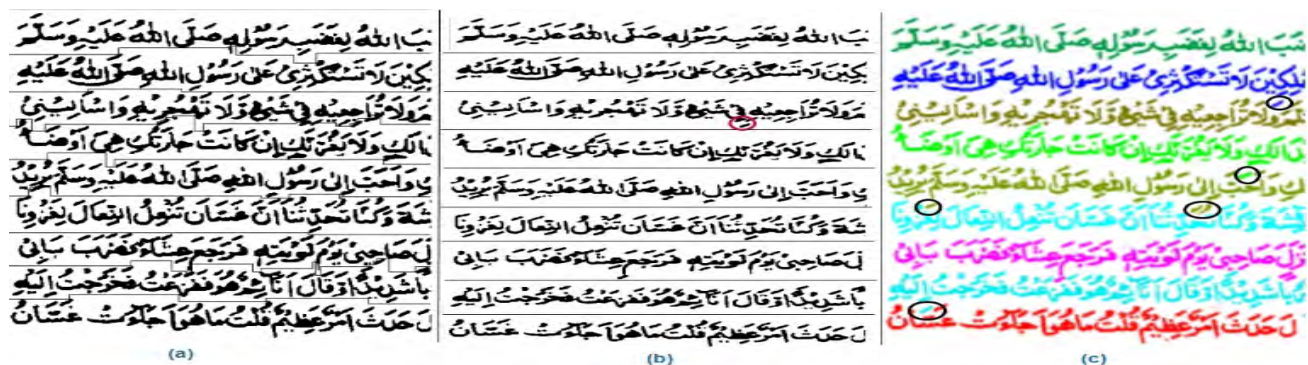 اللهُ لِغَضَبِ رَسُوْلِهٖ صَلَّى اللهُ عَلَيْهِ وَسَلَّمَ
لَا تَسْتَكْثِرِىْ عَلٰى رَسُوْلِ اللهِ صَلَّى اللهُ عَلَيْهِ
وَلَا تُرَاجِعِيْهِ فِيْ شَيْءٍ وَّلَا تَهْجُرِيْهِ وَاسْاَلِيْنِىْ
مَا لَكِ وَلَا يَغُرَّنَّكِ اِنْ كَانَتْ جَارَتُكِ هِىَ اَوْضَأُ
وَاَحَبَّ اِلٰى رَسُوْلِ اللهِ صَلَّى اللهُ عَلَيْهِ وَسَلَّمَ يُرِيْدُ
وَكُنَّا تُحُدِّثْنَا اَنَّ غَسَّانَ تُنْعِلُ النِّعَالَ لِغَزْوِنَا
صَاحِبِىْ يَوْمَ نَوْبَتِهٖ فَرَجَعَ عِشَاءً فَضَرَبَ بَابِىْ
شَدِيْدًا وَّقَالَ اَنَائِمٌ هُوَ فَفَزِعْتُ فَخَرَجْتُ اِلَيْهِ
حَدَثَ اَمْرٌ عَظِيْمٌ قُلْتُ مَا هُوَ اَجَاءَتْ غَسَّانُ
(a)
اللهُ لِغَضَبِ رَسُوْلِهٖ صَلَّى اللهُ عَلَيْهِ وَسَلَّمَ
لَا تَسْتَكْثِرِىْ عَلٰى رَسُوْلِ اللهِ صَلَّى اللهُ عَلَيْهِ
وَلَا تُرَاجِعِيْهِ فِيْ شَيْءٍ وَّلَا تَهْجُرِيْهِ وَاسْاَلِيْنِىْ
مَا لَكِ وَلَا يَغُرَّنَّكِ اِنْ كَانَتْ جَارَتُكِ هِىَ اَوْضَأُ
وَاَحَبَّ اِلٰى رَسُوْلِ اللهِ صَلَّى اللهُ عَلَيْهِ وَسَلَّمَ يُرِيْدُ
وَكُنَّا تُحُدِّثْنَا اَنَّ غَسَّانَ تُنْعِلُ النِّعَالَ لِغَزْوِنَا
صَاحِبِىْ يَوْمَ نَوْبَتِهٖ فَرَجَعَ عِشَاءً فَضَرَبَ بَابِىْ
شَدِيْدًا وَّقَالَ اَنَائِمٌ هُوَ فَفَزِعْتُ فَخَرَجْتُ اِلَيْهِ
حَدَثَ اَمْرٌ عَظِيْمٌ قُلْتُ مَا هُوَ اَجَاءَتْ غَسَّانُ
(b)
اللهُ لِغَضَبِ رَسُوْلِهٖ صَلَّى اللهُ عَلَيْهِ وَسَلَّمَ
لَا تَسْتَكْثِرِىْ عَلٰى رَسُوْلِ اللهِ صَلَّى اللهُ عَلَيْهِ
وَلَا تُرَاجِعِيْهِ فِيْ شَيْءٍ وَّلَا تَهْجُرِيْهِ وَاسْاَلِيْنِىْ
مَا لَكِ وَلَا يَغُرَّنَّكِ اِنْ كَانَتْ جَارَتُكِ هِىَ اَوْضَأُ
وَاَحَبَّ اِلٰى رَسُوْلِ اللهِ صَلَّى اللهُ عَلَيْهِ وَسَلَّمَ يُرِيْدُ
وَكُنَّا تُحُدِّثْنَا اَنَّ غَسَّانَ تُنْعِلُ النِّعَالَ لِغَزْوِنَا
صَاحِبِىْ يَوْمَ نَوْبَتِهٖ فَرَجَعَ عِشَاءً فَضَرَبَ بَابِىْ
شَدِيْدًا وَّقَالَ اَنَائِمٌ هُوَ فَفَزِعْتُ فَخَرَجْتُ اِلَيْهِ
حَدَثَ اَمْرٌ عَظِيْمٌ قُلْتُ مَا هُوَ اَجَاءَتْ غَسَّانُ
(c)